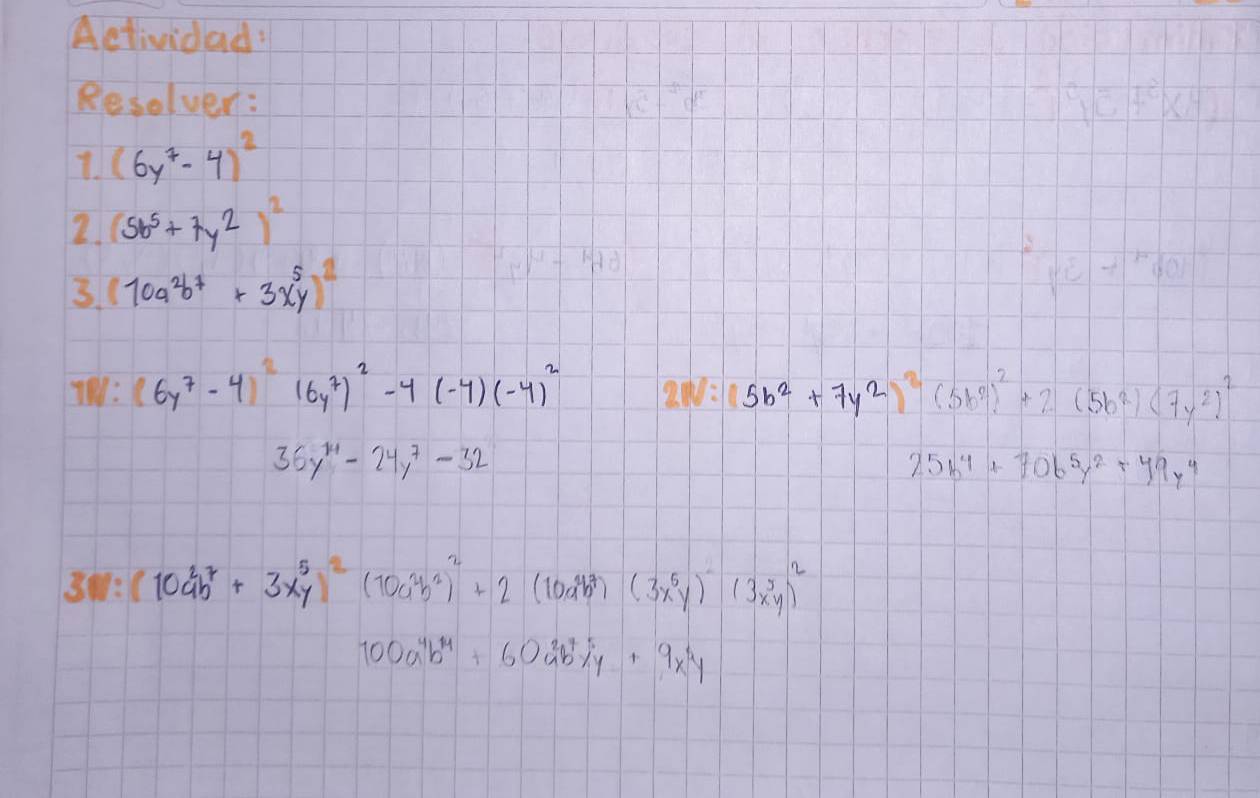 Actividad:
Resolver:
1. (6y⁷ - 4)²
2. (5b⁵ + 7y²)²
3. (10a²b⁷ + 3x⁵y)²
1N: (6y⁷ - 4)² (6y⁷)² - 4 (-4) (-4)²
36y¹⁴ - 24y⁷ - 32
2N: (5b² + 7y²)² (5b²)² + 2 (5b²) (7y²)²
25b⁴ + 70b⁵y² + 49y⁴
3N: (10a²b⁷ + 3x⁵y)² (10a²b²)² + 2 (10a²b⁷) (3x⁵y) (3x⁵y)²
100a⁴b¹⁴ + 60a²b⁷x⁵y +